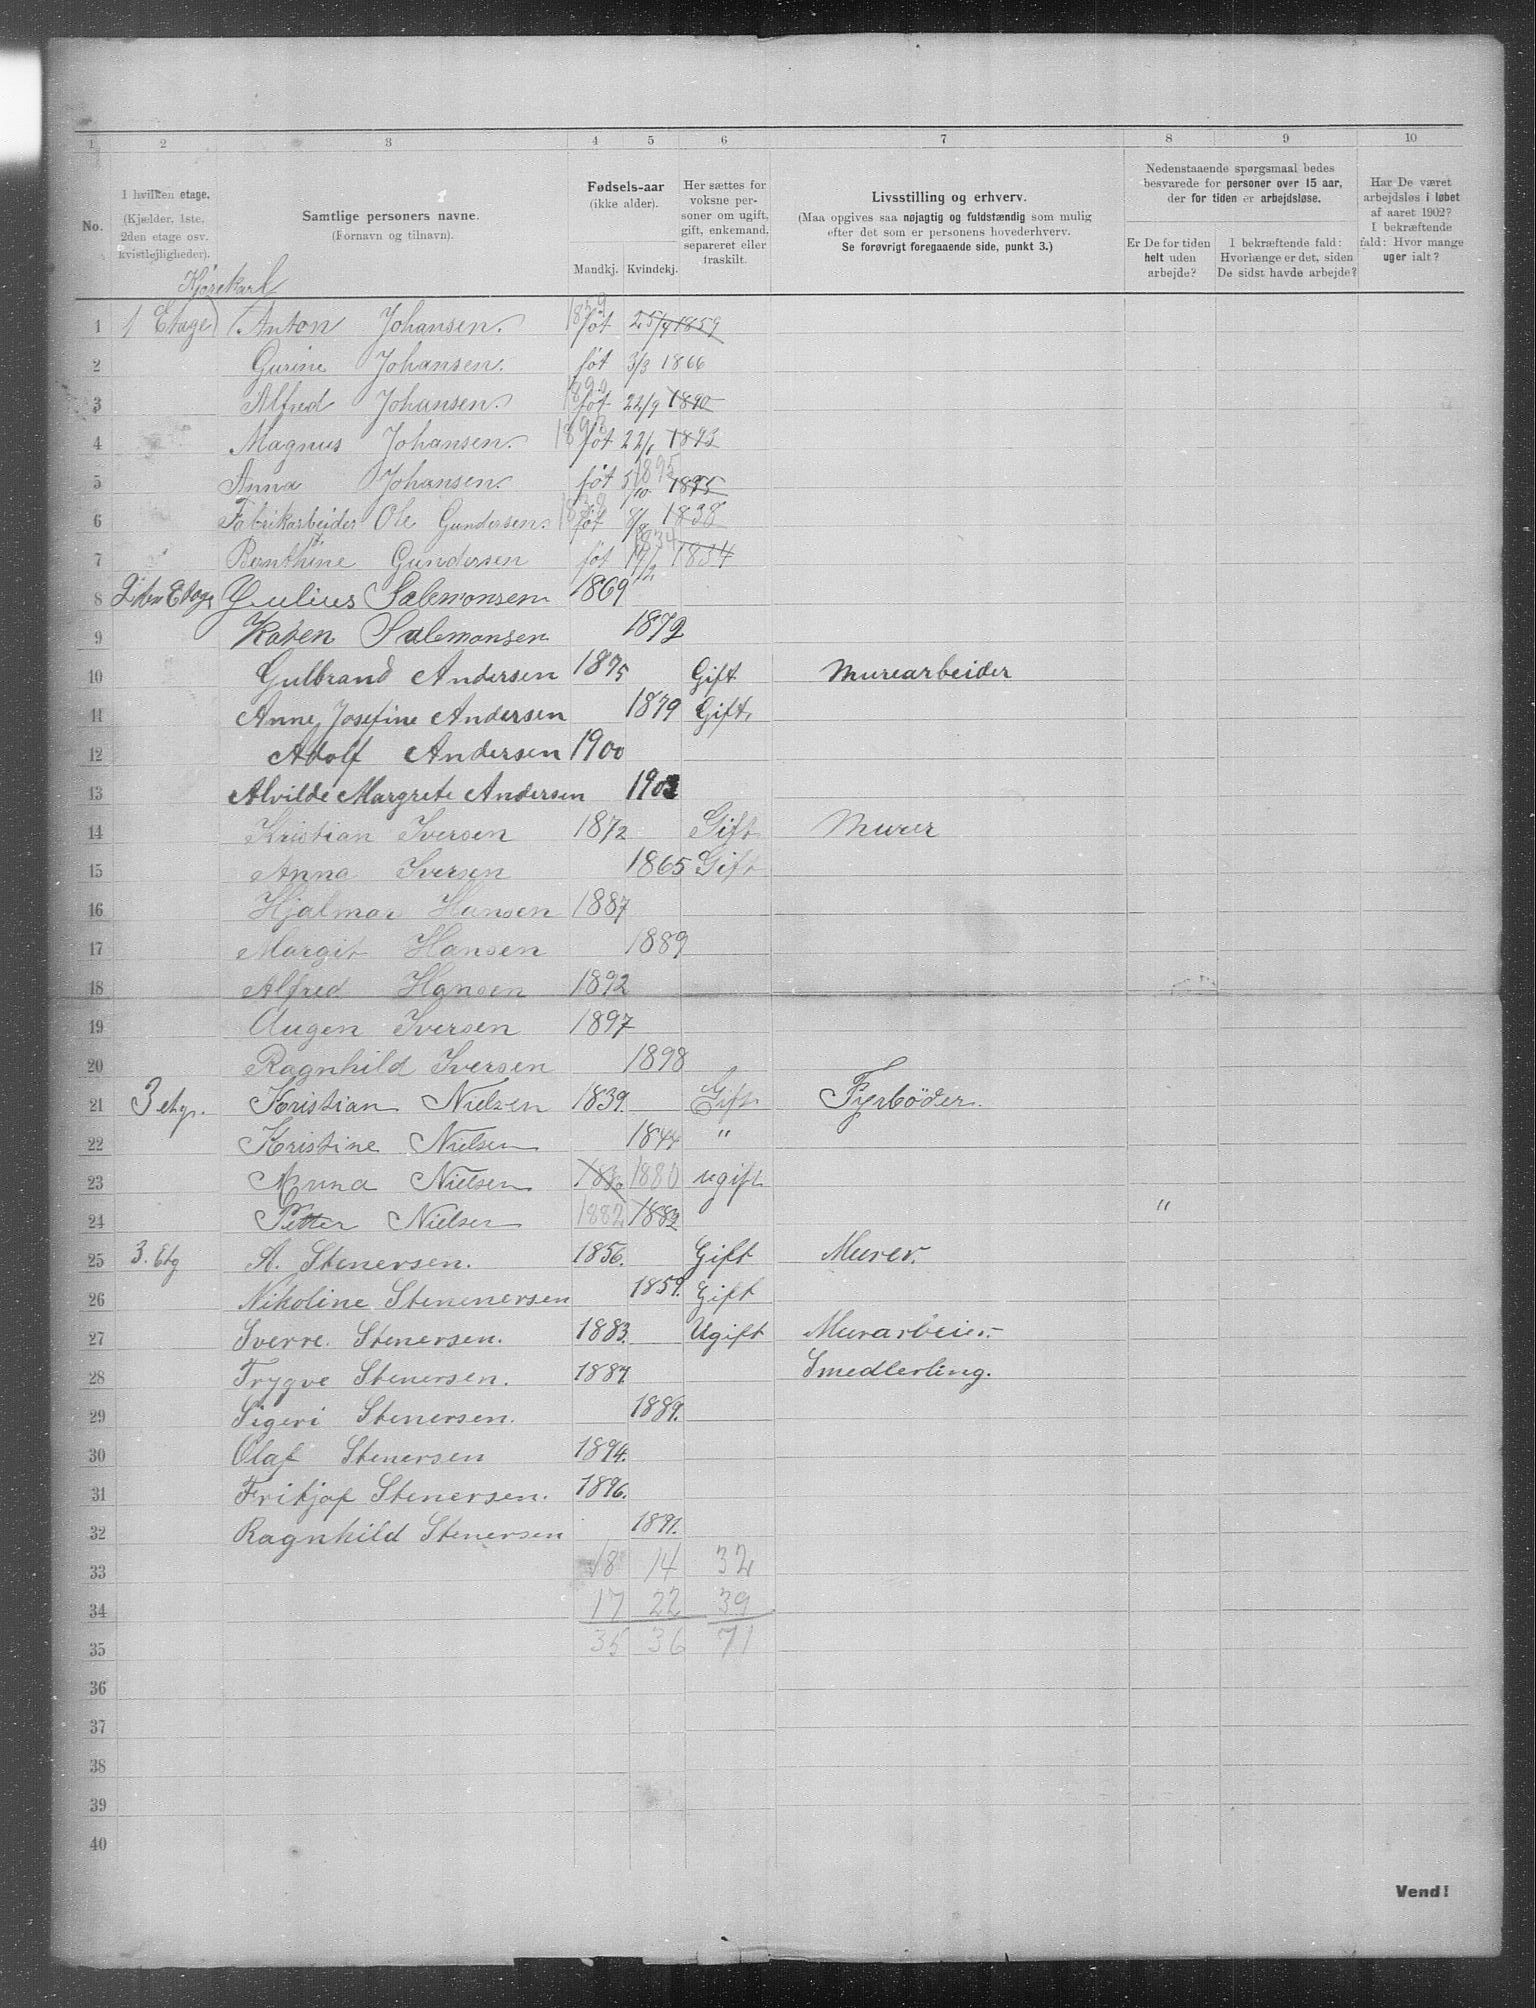 1 2 3 4 5 6 7 8 9 10
No.
I hvilken etage.
(Kjælder, 1ste,
2den etage osv.
kvistlejligheder).
Samtlige personers navne.
(Fornavn og tilnavn).
Fødsels-aar
(ikke alder).
Mandkj. Kvindekj.
Her sættes for
voksne per-
soner om ugift,
gift, enkemand,
separeret eller
fraskilt.
Livsstilling og erhverv.
(Maa opgives saa nøjagtig og fuldstændig som mulig
efter det som er personens hovederhverv.
Se forøvrigt foregaaende side, punkt 3.)
Nedenstaaende spørgsmaal bedes
besvarede for personer over 15 aar,
der for tiden er arbejdsløse.
Er De for tiden
helt uden
arbejde?
I bekræftende fald:
Hvorlænge er det, siden
De sidst havde arbejde?
Har De været
arbejdsløs i løbet
af aaret 1902?
I bekræftende
fald: Hvor mange
uger ialt?
Kjørekarl
1 1 Etage Anton Johansen. 1859 føt 25/4 1859
2 Gurine Johansen. føt 3/3 1866
3 Alfred Johansen. 1890 føt 22/9 1890
4 Magnus Johansen. 1893 føt 22/1 1893
5 Anna Johansen. føt 5/10 1895 1895
6 Fabrikarbeider Ole Gundersen. 1838 føt 8/9 1838
7 Bernthine Gundersen føt 19/2 1834 1834
8 2den Etage Julius Salemonsen 1869
9 Karen Salemonsen 1872
10 Gulbrand Andersen 1875 Gift Murearbeider
11 Anne Josefine Andersen 1879 Gift,
12 Adolf Andersen 1900
13 Alvilde Margrete Andersen 1902
14 Kristian Iversen 1872 Gift Murer
15 Anna Iversen 1865 Gift
16 Hjalmar Hansen 1887
17 Margit Hansen 1889
18 Alfred Hansen 1892
19 Augen Iversen 1897
20 Ragnhild Iversen 1898
21 3 etg. Kristian Nielsen 1839. Gift Fyrbøder.
22 Kristine Nielsen 1844 "
23 Anna Nielsen 1880 1880 ugift
24 Petter Nielsen 1882 1882 "
25 3. Etg A. Stenersen. 1856. Gift Murer.
26 Nikoline Stenenersen 1859. Gift
27 Sverre. Stenersen. 1883. Ugift Murarbeier.
28 Trygve Stenersen. 1887. Smedlerling.
29 Sigeri Stenersen. 1889.
30 Olaf Stenersen 1894.
31 Fritjof Stenersen. 1896.
32 Ragnhild Stenersen 1891.
33 18 14 32
34 17 22 39
35 35 36 71
36
37
38
39
40
Vend!